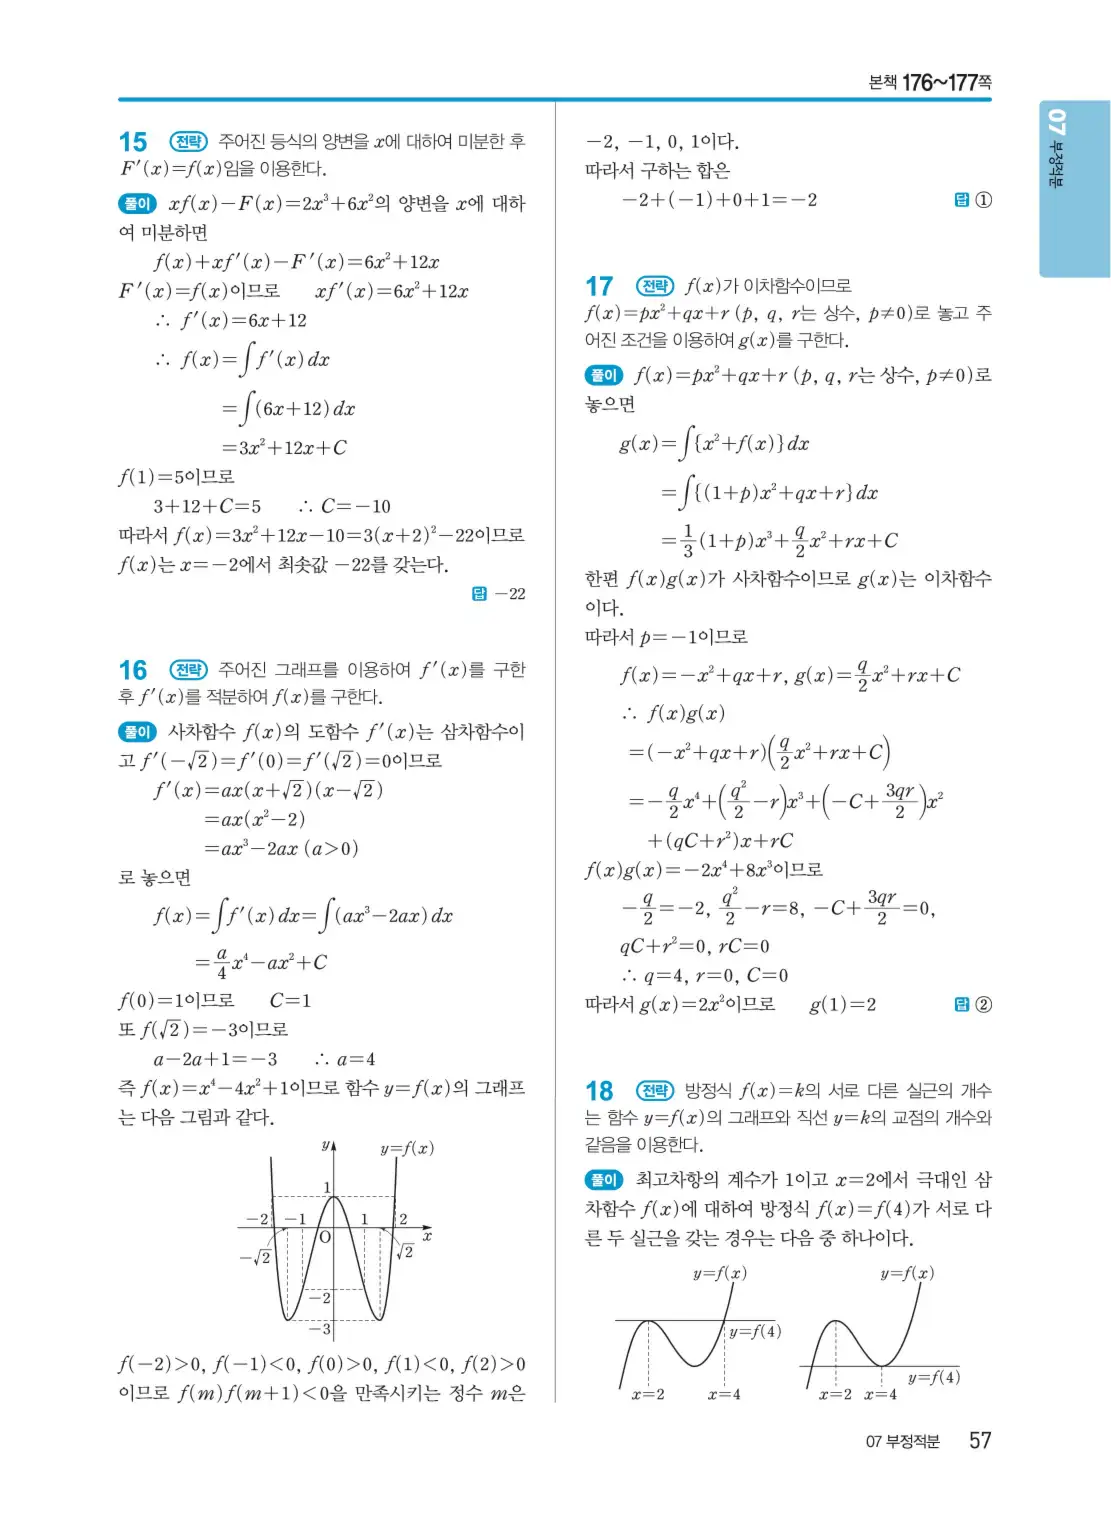 본책 176~177쪽
07 부정적분
15 전략 주어진 등식의 양변을 x에 대하여 미분한 후
F′(x)=f(x)임을 이용한다.
풀이 xf(x)-F(x)=2x³+6x²의 양변을 x에 대하
여 미분하면
f(x)+xf′(x)-F′(x)=6x²+12x
F′(x)=f(x)이므로 xf′(x)=6x²+12x
∴ f′(x)=6x+12
∴ f(x)=∫f′(x)dx
=∫(6x+12)dx
=3x²+12x+C
f(1)=5이므로
3+12+C=5 ∴ C=-10
따라서 f(x)=3x²+12x-10=3(x+2)²-22이므로
f(x)는 x=-2에서 최솟값 -22를 갖는다.
답 -22
16 전략 주어진 그래프를 이용하여 f′(x)를 구한
후 f′(x)를 적분하여 f(x)를 구한다.
풀이 사차함수 f(x)의 도함수 f′(x)는 삼차함수이
고 f′(-√2)=f′(0)=f′(√2)=0이므로
f′(x)=ax(x+√2)(x-√2)
=ax(x²-2)
=ax³-2ax (a>0)
로 놓으면
f(x)=∫f′(x)dx=∫(ax³-2ax)dx
=a/4 x⁴-ax²+C
f(0)=1이므로 C=1
또 f(√2)=-3이므로
a-2a+1=-3 ∴ a=4
즉 f(x)=x⁴-4x²+1이므로 함수 y=f(x)의 그래프
는 다음 그림과 같다.
y y=f(x)
1
-2 -1 1 2
O x
-√2 √2
-2
-3
f(-2)>0, f(-1)<0, f(0)>0, f(1)<0, f(2)>0
이므로 f(m)f(m+1)<0을 만족시키는 정수 m은
-2, -1, 0, 1이다.
따라서 구하는 합은
-2+(-1)+0+1=-2 답 ①
17 전략 f(x)가 이차함수이므로
f(x)=px²+qx+r (p, q, r는 상수, p≠0)로 놓고 주
어진 조건을 이용하여 g(x)를 구한다.
풀이 f(x)=px²+qx+r (p, q, r는 상수, p≠0)로
놓으면
g(x)=∫{x²+f(x)}dx
=∫{(1+p)x²+qx+r}dx
=1/3(1+p)x³+q/2 x²+rx+C
한편 f(x)g(x)가 사차함수이므로 g(x)는 이차함수
이다.
따라서 p=-1이므로
f(x)=-x²+qx+r, g(x)=q/2 x²+rx+C
∴ f(x)g(x)
=(-x²+qx+r)(q/2 x²+rx+C)
=-q/2 x⁴+(q²/2-r)x³+(-C+3qr/2)x²
+(qC+r²)x+rC
f(x)g(x)=-2x⁴+8x³이므로
-q/2=-2, q²/2-r=8, -C+3qr/2=0,
qC+r²=0, rC=0
∴ q=4, r=0, C=0
따라서 g(x)=2x²이므로 g(1)=2 답 ②
18 전략 방정식 f(x)=k의 서로 다른 실근의 개수
는 함수 y=f(x)의 그래프와 직선 y=k의 교점의 개수와
같음을 이용한다.
풀이 최고차항의 계수가 1이고 x=2에서 극대인 삼
차함수 f(x)에 대하여 방정식 f(x)=f(4)가 서로 다
른 두 실근을 갖는 경우는 다음 중 하나이다.
y=f(x) y=f(x)
y=f(4)
y=f(4)
x=2 x=4 x=2 x=4
07 부정적분 57